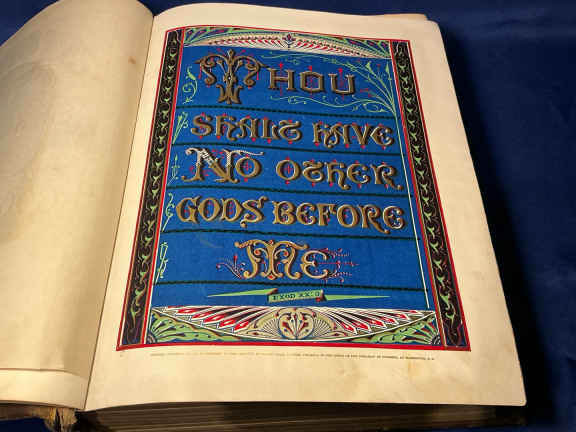 THOU
SHALT HAVE
NO OTHER
GODS BEFORE
ME
EXOD XX: 3